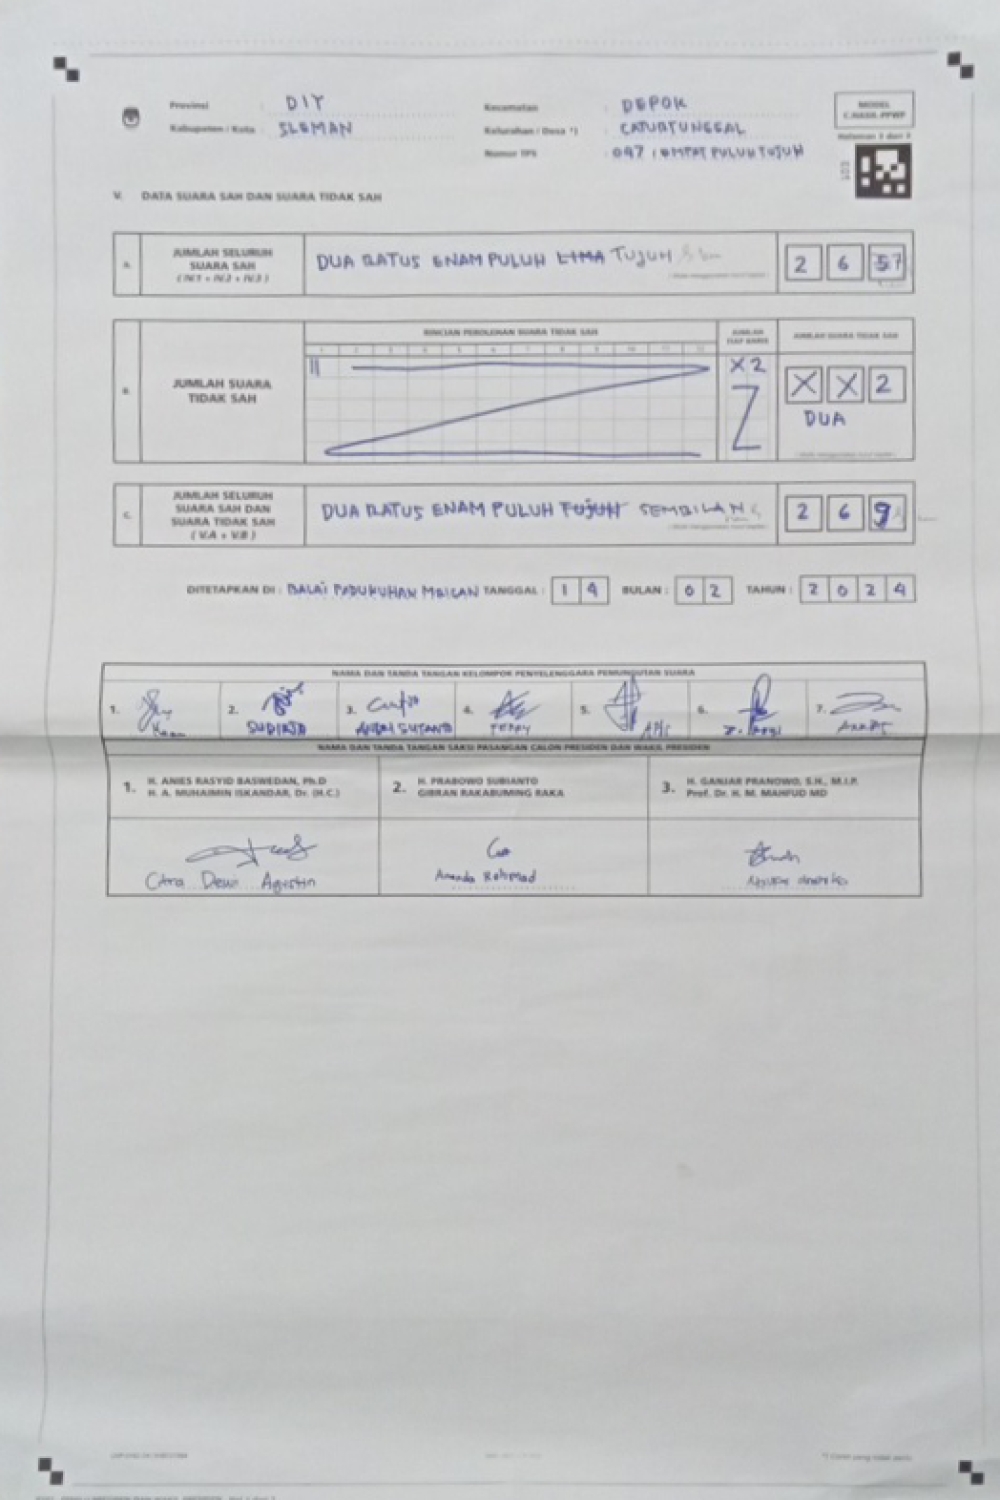 Provinsi : DIY
Kabupaten / Kota : SLEMAN
Kecamatan : DEPOK
Kelurahan / Desa *) : CATURTUNGGAL
Nomor TPS : 047 (EMPAT PULUH TUJUH
MODEL
C.HASIL-PPWP
Halaman 3 dari 3
V. DATA SUARA SAH DAN SUARA TIDAK SAH
A. JUMLAH SELURUH
SUARA SAH
( IV.1 + IV.2 + IV.3 )
DUA RATUS ENAM PULUH LIMA TUJUH
2 6 7
B. JUMLAH SUARA
TIDAK SAH
RINCIAN PEROLEHAN SUARA TIDAK SAH
1 2 3 4 5 6 7 8 9 10 11 12
JUMLAH
TIAP BARIS
X 2
JUMLAH SUARA TIDAK SAH
X X 2
DUA
C. JUMLAH SELURUH
SUARA SAH DAN
SUARA TIDAK SAH
( V.A + V.B )
DUA RATUS ENAM PULUH TUJUH SEMBILAN
2 6 9
DITETAPKAN DI : BALAI PADUKUHAN MRICAN TANGGAL : 1 4 BULAN : 0 2 TAHUN : 2 0 2 4
NAMA DAN TANDA TANGAN KELOMPOK PENYELENGGARA PEMUNGUTAN SUARA
1.
2. SUDIRJO
3.
4. TERRY
5.
6.
7.
NAMA DAN TANDA TANGAN SAKSI PASANGAN CALON PRESIDEN DAN WAKIL PRESIDEN
1. H. ANIES RASYID BASWEDAN, Ph.D
H. A. MUHAIMIN ISKANDAR, Dr. (H.C.)
2. H. PRABOWO SUBIANTO
GIBRAN RAKABUMING RAKA
3. H. GANJAR PRANOWO, S.H., M.I.P.
Prof. Dr. H. M. MAHFUD MD
Citra Dewi Agustin
Ananda Rohmad